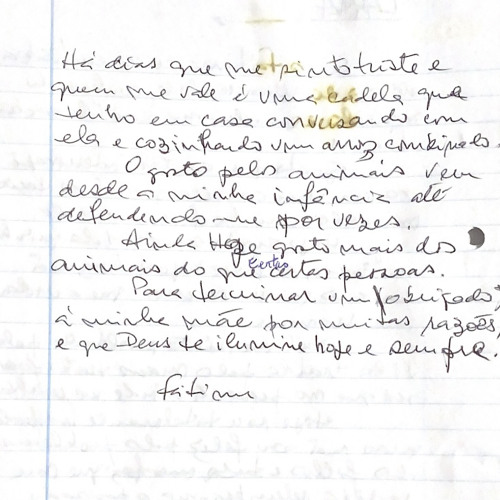 Há dias que me sinto triste e
quem me vale é uma cadela que
tenho em casa conversando com
ela e cozinhando um arroz combinado.
O gosto pelos animais vem
desde a minha infância até
defendendo-me por vezes.
Ainda Hoje gosto mais dos
animais do que certas certas pessoas.
Para terminar um obrigado,
à minha mãe por muitas razões,
e que Deus te ilumine hoje e sempre.
Fátima